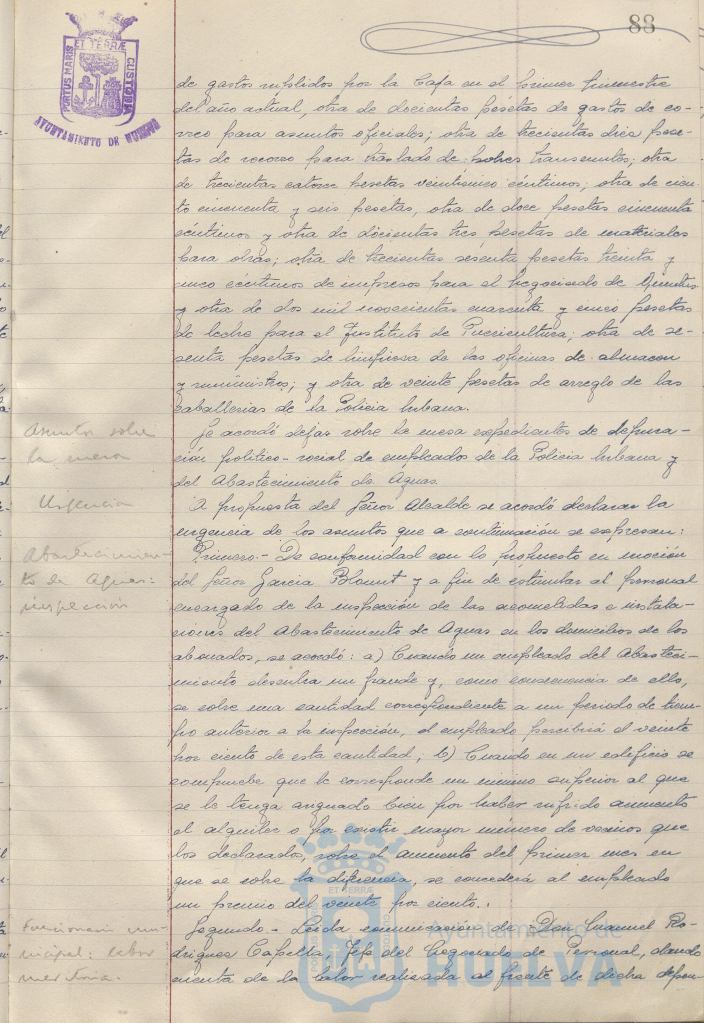 88
PORTUS MARIS ET TERRÆ CUSTODIA
AYUNTAMIENTO DE HUELVA
de gastos suplidos por la Caja en el primer trimestre
del año actual, otra de docientas pesetas de gastos de co-
rreo para asuntos oficiales; otra de trecientas diez pese-
tas de socorro para traslado de pobres transeuntes; otra
de trecientas catorce pesetas veinticinco céntimos; otra de cien-
to cincuenta y seis pesetas, otra de doce pesetas cincuenta
céntimos y otra de docientas tres pesetas de materiales
para obras; otra de trecientas sesenta pesetas treinta y
cinco céntimos de impresos para el Negociado de Quintas
y otra de dos mil novecientas cuarenta y cinco pesetas
de leche para el Instituto de Puericultura; otra de se-
senta pesetas de limpiesa de las oficinas de almacen
y suministros; y otra de veinte pesetas de arreglo de las
caballerias de la Policia Urbana.
Asuntos sobre
la mesa
Se acordó dejar sobre la mesa expedientes de depura-
ción politico-social de empleados de la Policia Urbana y
del Abastecimiento de Aguas.
Urgencia
A propuesta del Señor Alcalde se acordó declarar la
urgencia de los asuntos que a continuación se expresan:
Abastecimien-
to de Aguas:
inspección
Primero.- De conformidad con lo propuesto en moción
del Señor Garcia Blount y a fin de estimular al personal
encargado de la inspección de las acometidas e instala-
ciones del Abastecimiento de Aguas en los domicilios de los
abonados, se acordó: a) Cuando un empleado del Abasteci-
miento descubra un fraude y, como consecuencia de ello,
se cobre una cantidad correspondiente a un periodo de tiem-
po anterior a la inspección, el empleado percibirá el veinte
por ciento de esta cantidad; b) Cuando en un edificio se
compruebe que le corresponde un minimo superior al que
se le tenga asignado bien por haber sufrido aumento
el alquiler o por existir mayor número de vecinos que
los declarados, sobre el aumento del primer mes en
que se cobre la diferencia, se concederá al empleado
un premio del veinte por ciento.
Funcionario mu-
nicipal: labor
meritoria.
Segundo.- Leida comunicación de Don Manuel Ro-
driguez Capella, Jefe del Negociado de Personal, dando
cuenta de la labor realizada al frente de dicha depen-
Ayuntamiento de
HUELVA